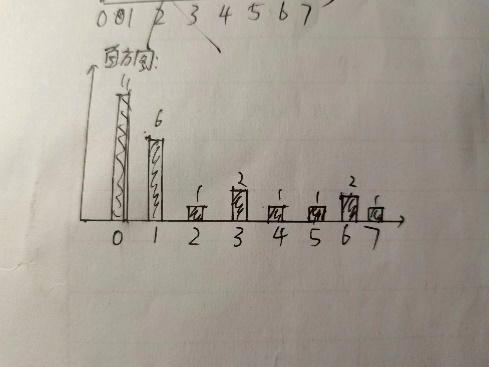 0 1 2 3 4 5 6 7
直方图:
11 6 1 2 1 1 2 1
0 1 2 3 4 5 6 7